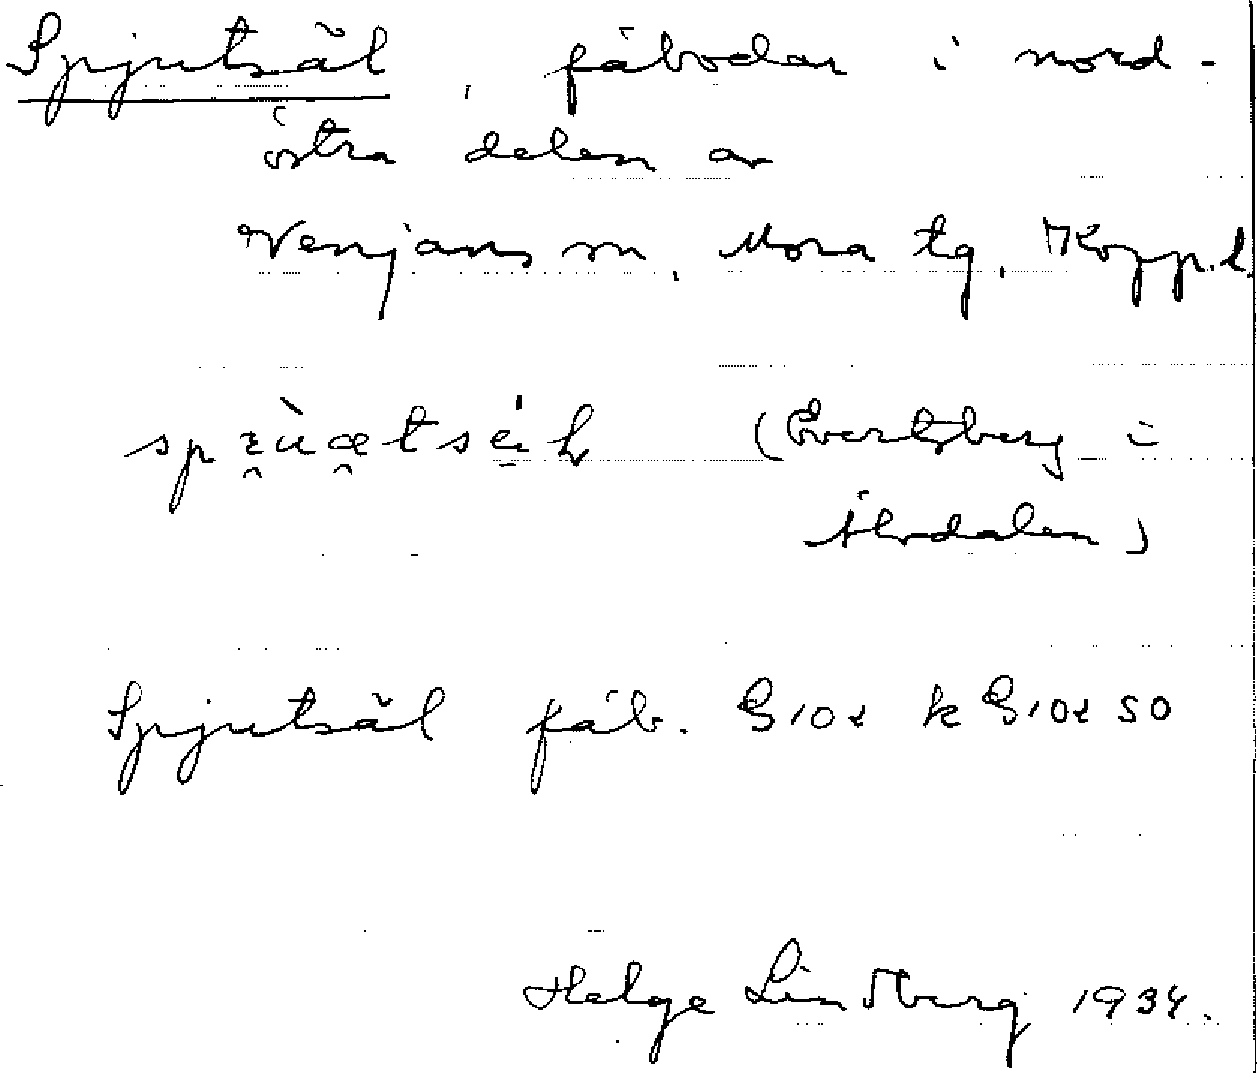 Spjutsäl, fäbodar i nord-
östra delen av
Venjans sn, Mora tg, Kopp. l.
(Evertsberg i
Älvdalen)
Spjutsäl fäb. G 102 k G 102 SO
Helge Lindberg 1934.